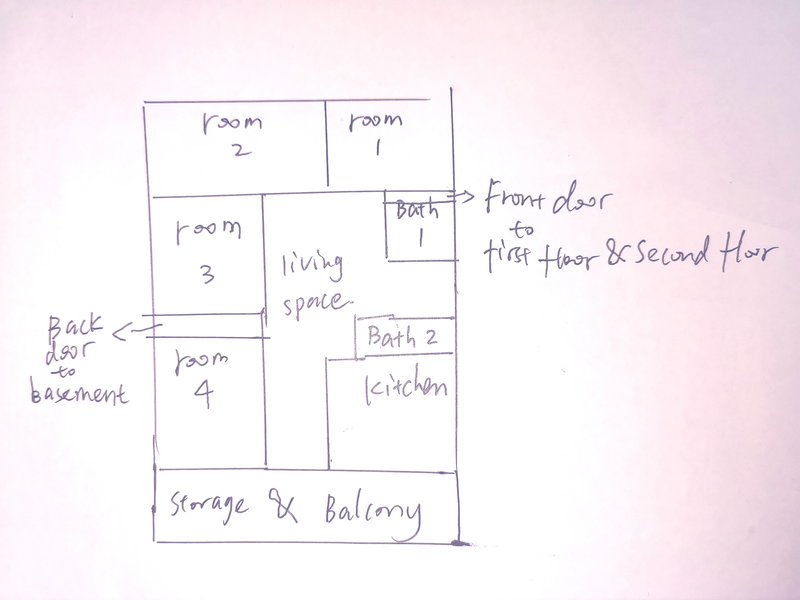 room
2
room
1
Bath
1
Front door
to
first floor & second floor
room
3
living
space
Back
door
to
basement
room
4
Bath 2
kitchen
Storage & Balcony